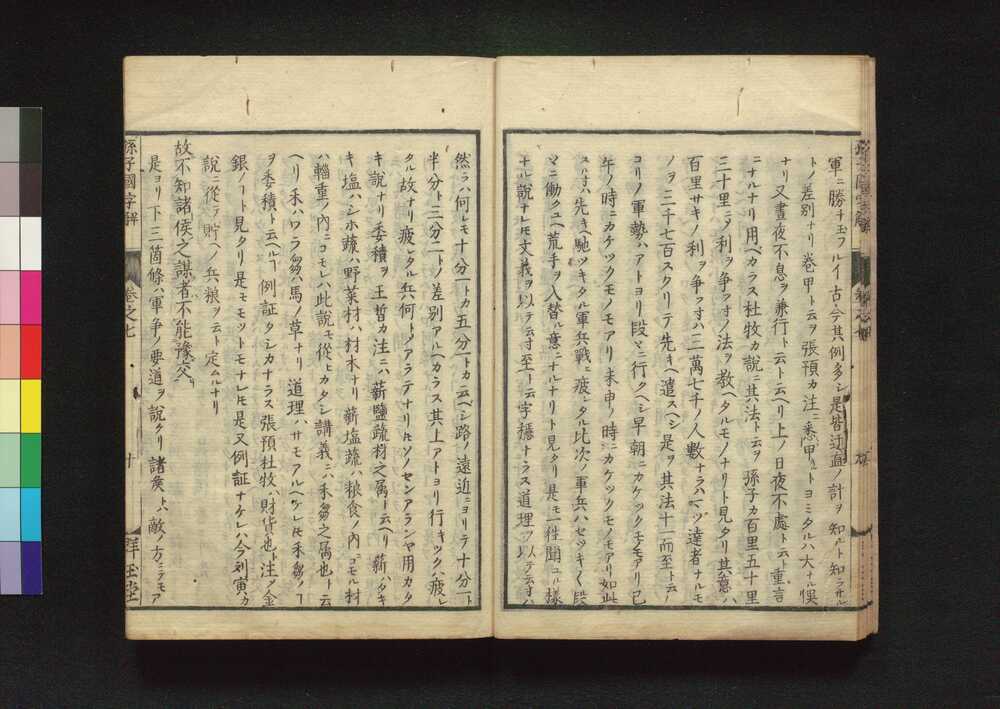 軍ニ勝玉フルイ古今其例多シ是皆迂直ノ計ヲ知ルト知ラサル
トノ差別ナリ巻甲ト云ヲ張預カ注ニ悉甲トヨミタルハ大ナル悞
ナリ又晝夜不息ヲ兼行ト云ト云ヘリ上ノ日夜不處ト云ト重言
ニナルナリ用ベカラス杜牧カ説ニ其法ト云ヲ孫子カ百里五十里
三十里ニノ利ヲ争フ寸ノ法ヲ教ヘタルモノナリト見タリ其意ハ
百里サキノ利ヲ争フ寸ハ二萬七千ノ人數ナラハマヅ達者ナルモ
ノヲ三千七百スクリテ先キヘ遣スヘシ是ヲ其法十一而至ト云
コリノ軍勢ハアトヨリ段マニ行クヘシ早朝ニカケツクモモアリ已
午ノ時ニカケツクモノモアリ未申ノ時ニカケツクモノモアリ如此
スル寸ハ先キヘ馳ツキタル軍兵戰ニ疲レタル比次ノ軍兵ハセツキ
マニ働クユヘ荒手ヲ入替ル意ニナルナリト見タリ是モ一往聞ユル様
ナル説ナレ𪜈文義ヲ以テ云寸至ト云字穏ナラス道理ヲ以テ云寸ハ
然ラハ何レモ十分一トカ五分一トカ云ヘシ路ノ遠近ニヨリテ十分一ト
半分ト三分二トノ差別アルヘカラス其上アトヨリ行キツクハ疲レ
タル故ナリ疲レタル兵何トノアラテナリ𪜈ソノセンアランヤ用カタ
キ説ナリ委積ヲ王晢カ注ニハ薪鹽疏材之属ト云ヘリ薪ハタキ
キ塩ハシホ蔬ハ野菜材ハ材木ナリ薪塩蔬ハ粮食ノ内ニコモル材
ハ輜重ノ内ニコモレハ此説モ從ヒカタシ講義ニハ禾芻之属也ト云
ヘリ禾ハワラ芻ハ馬ノ草ナリ道理ハサモアルヘケレ𪜈禾芻ノヿ
ヲ委積ト云ヘルヿ例証タシカナラス張預杜牧ハ財貨也ト注ノ金
銀ノヿト見タリ是モモットモナレ𪜈是又例証ナケレハ今刘寅カ
説ニ從テ貯ヘノ兵粮ヲ云ト定ムルナリ
故不知諸侯之謀者不能豫交
是ヨリ下三箇條ハ軍争ノ要道ヲ説タリ諸矦トハ敵ノ方ニテモア
孫子國字解
巻之七
十